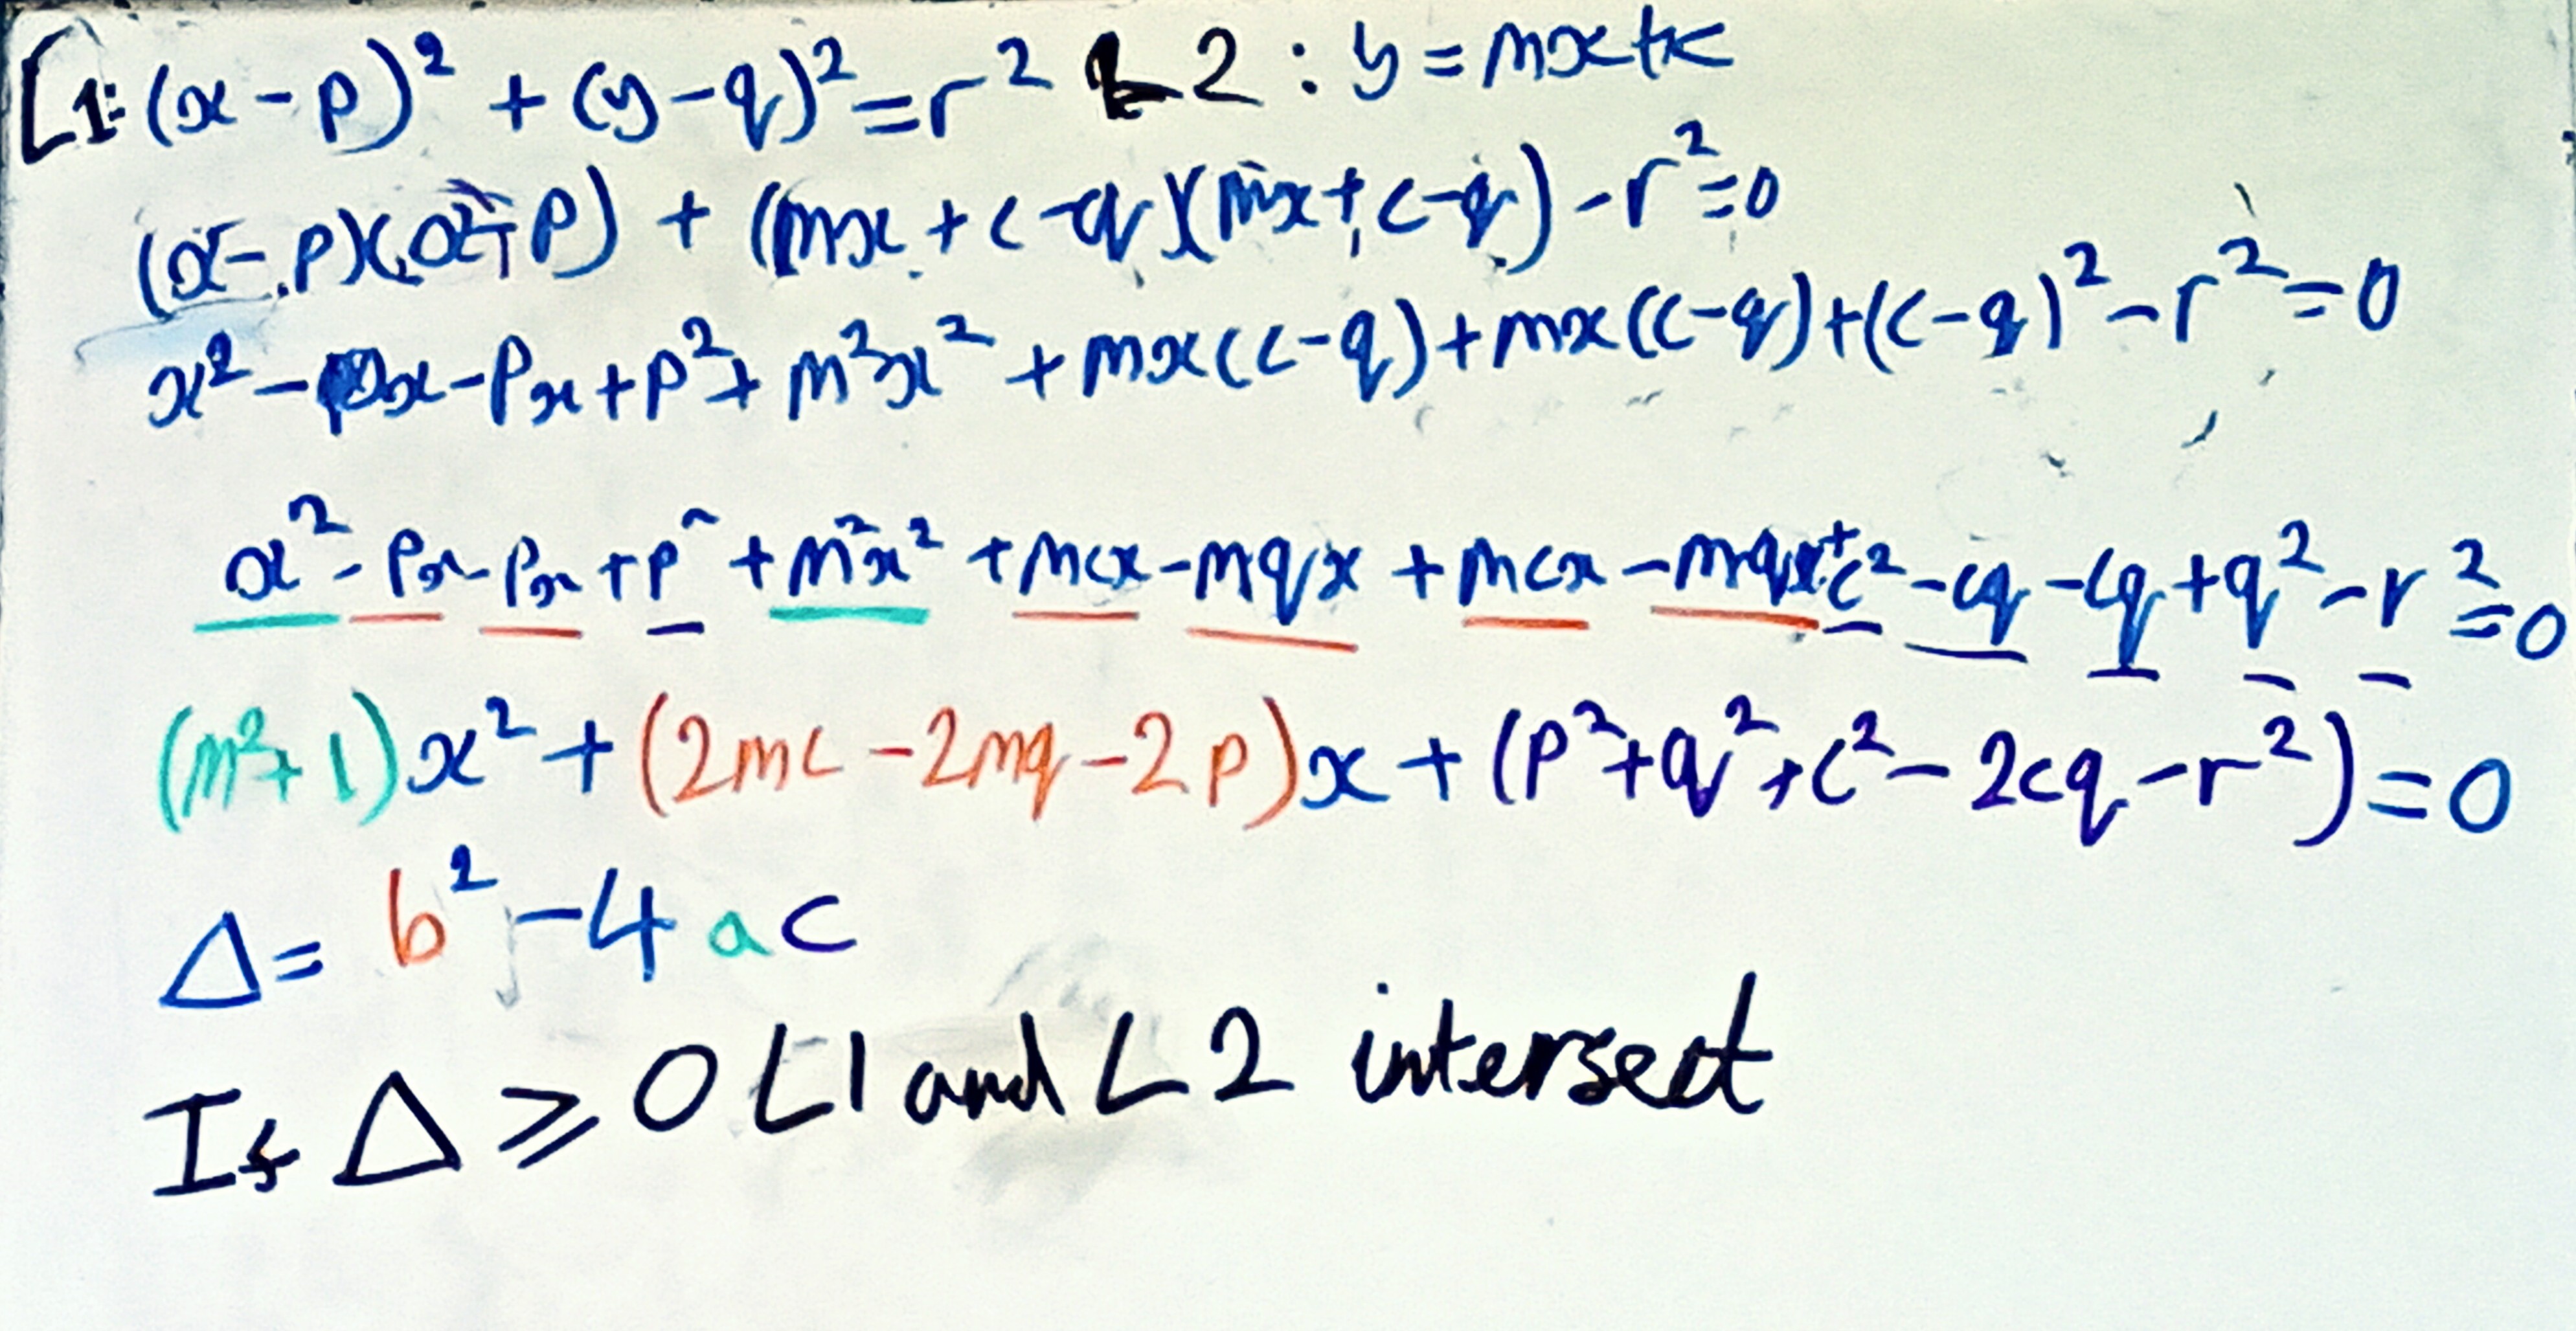 L1: (x-p)² + (y-q)² = r² L2 : y = mx+c
(x-p)(x-p) + (mx+c-q)(mx+c-q) - r² = 0
x² - px - px + p² + m²x² + mx(c-q) + mx(c-q) + (c-q)² - r² = 0
x² - px - px + p² + m²x² + mcx - mqx + mcx - mqx + c² - cq - cq + q² - r² = 0
(m²+1)x² + (2mc - 2mq - 2p)x + (p² + q² + c² - 2cq - r²) = 0
Δ = b² - 4ac
If Δ ⩾ 0 L1 and L2 intersect